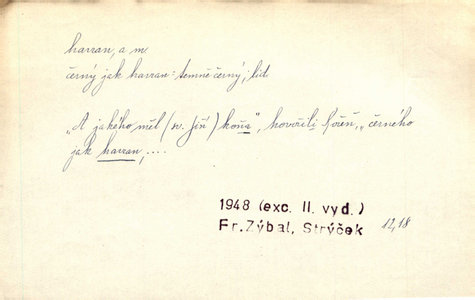 havran, a m.
černý jak havran: temně černý; lid
„A jakého měl (sv. Jiří) koňa", hovořili „černého
jak havran, ....
1948 (exc. II. vyd.)
Fr.Zýbal, Strýček 12,18